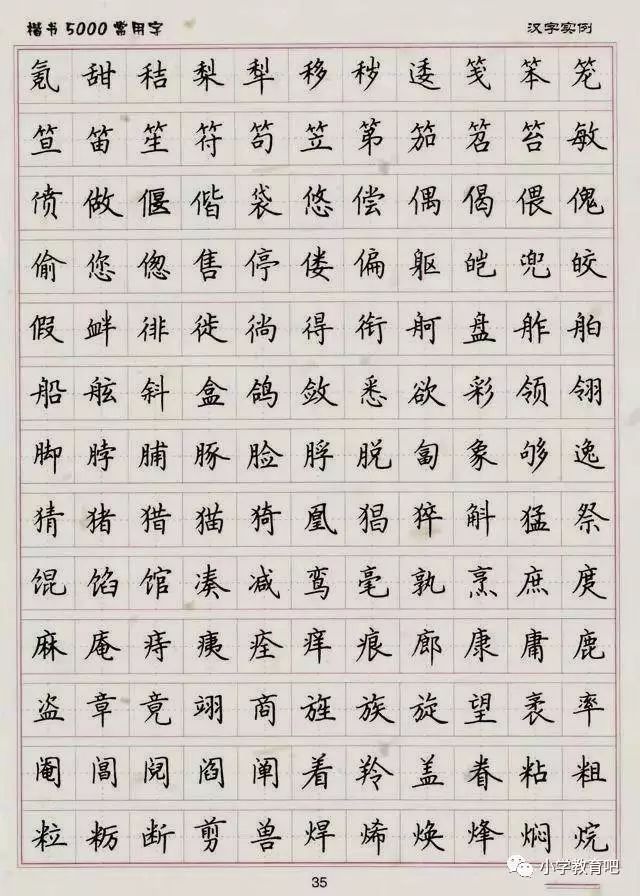 楷书5000常用字 汉字实例
氪 甜 秸 梨 犁 移 秽 逶 笺 笨 笼
笪 笛 笙 符 笱 笠 第 笳 笤 笞 敏
偾 做 偃 偕 袋 悠 偿 偶 偈 偎 傀
偷 您 偬 售 停 偻 偏 躯 皑 兜 皎
假 衅 徘 徙 徜 得 衔 舸 盘 舴 舶
船 舷 斜 盒 鸽 敛 悉 欲 彩 领 翎
脚 脖 脯 豚 脸 脬 脱 匐 象 够 逸
猜 猪 猎 猫 猗 凰 猖 猝 斛 猛 祭
馄 馅 馆 凑 减 鸾 毫 孰 烹 庶 庹
麻 庵 痔 痍 痊 痒 痕 廊 康 庸 鹿
盗 章 竟 翊 商 旌 族 旋 望 袤 率
阉 阊 阋 阎 阐 着 羚 盖 眷 粘 粗
粒 粝 断 剪 兽 焊 烯 焕 烽 焖 烷
35
小学教育吧